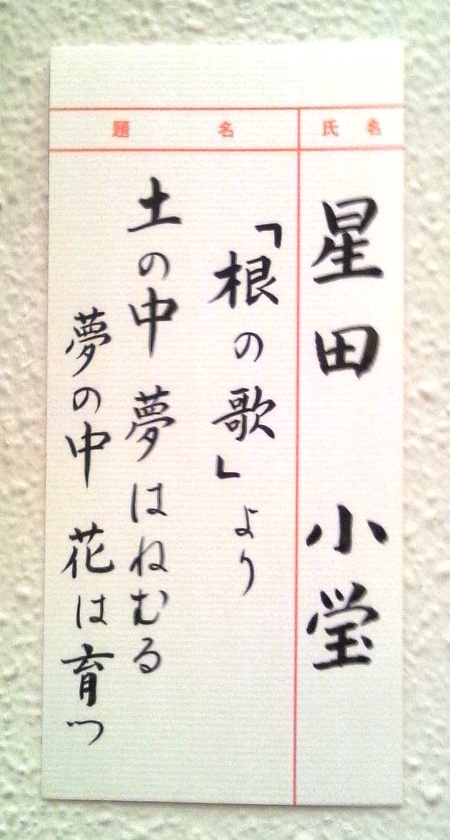 氏名
星田 小瑩
題名
「根の歌」より
土の中 夢はねむる
夢の中 花は育つ